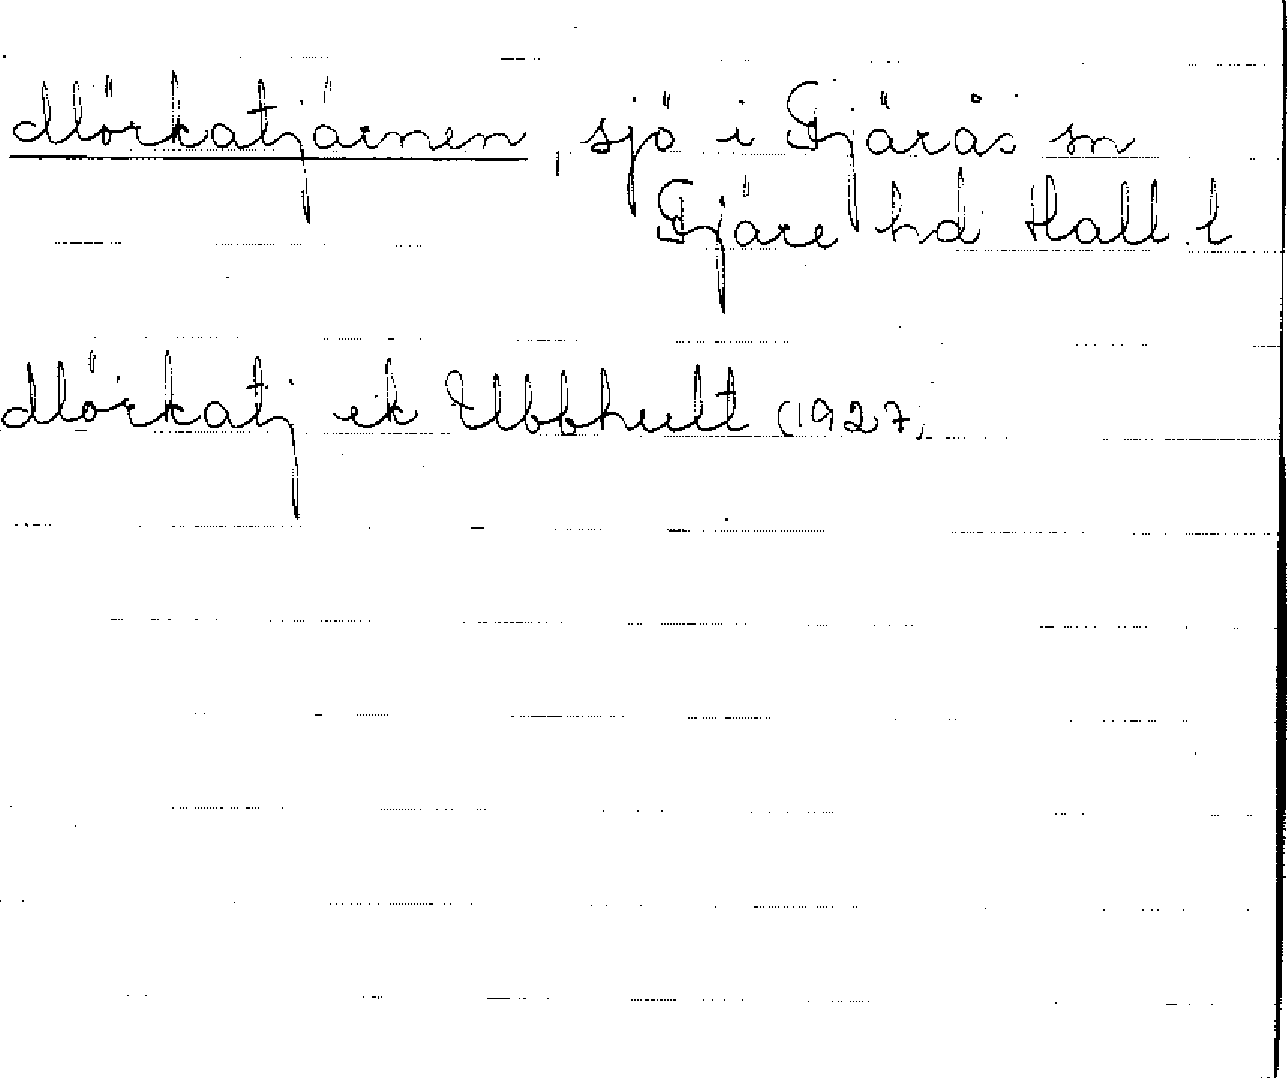 Mörkatjärnen, sjö i Fjärås sn
Fjäre hd Hall. l
Mörkatj ek Ubbhult (1927)